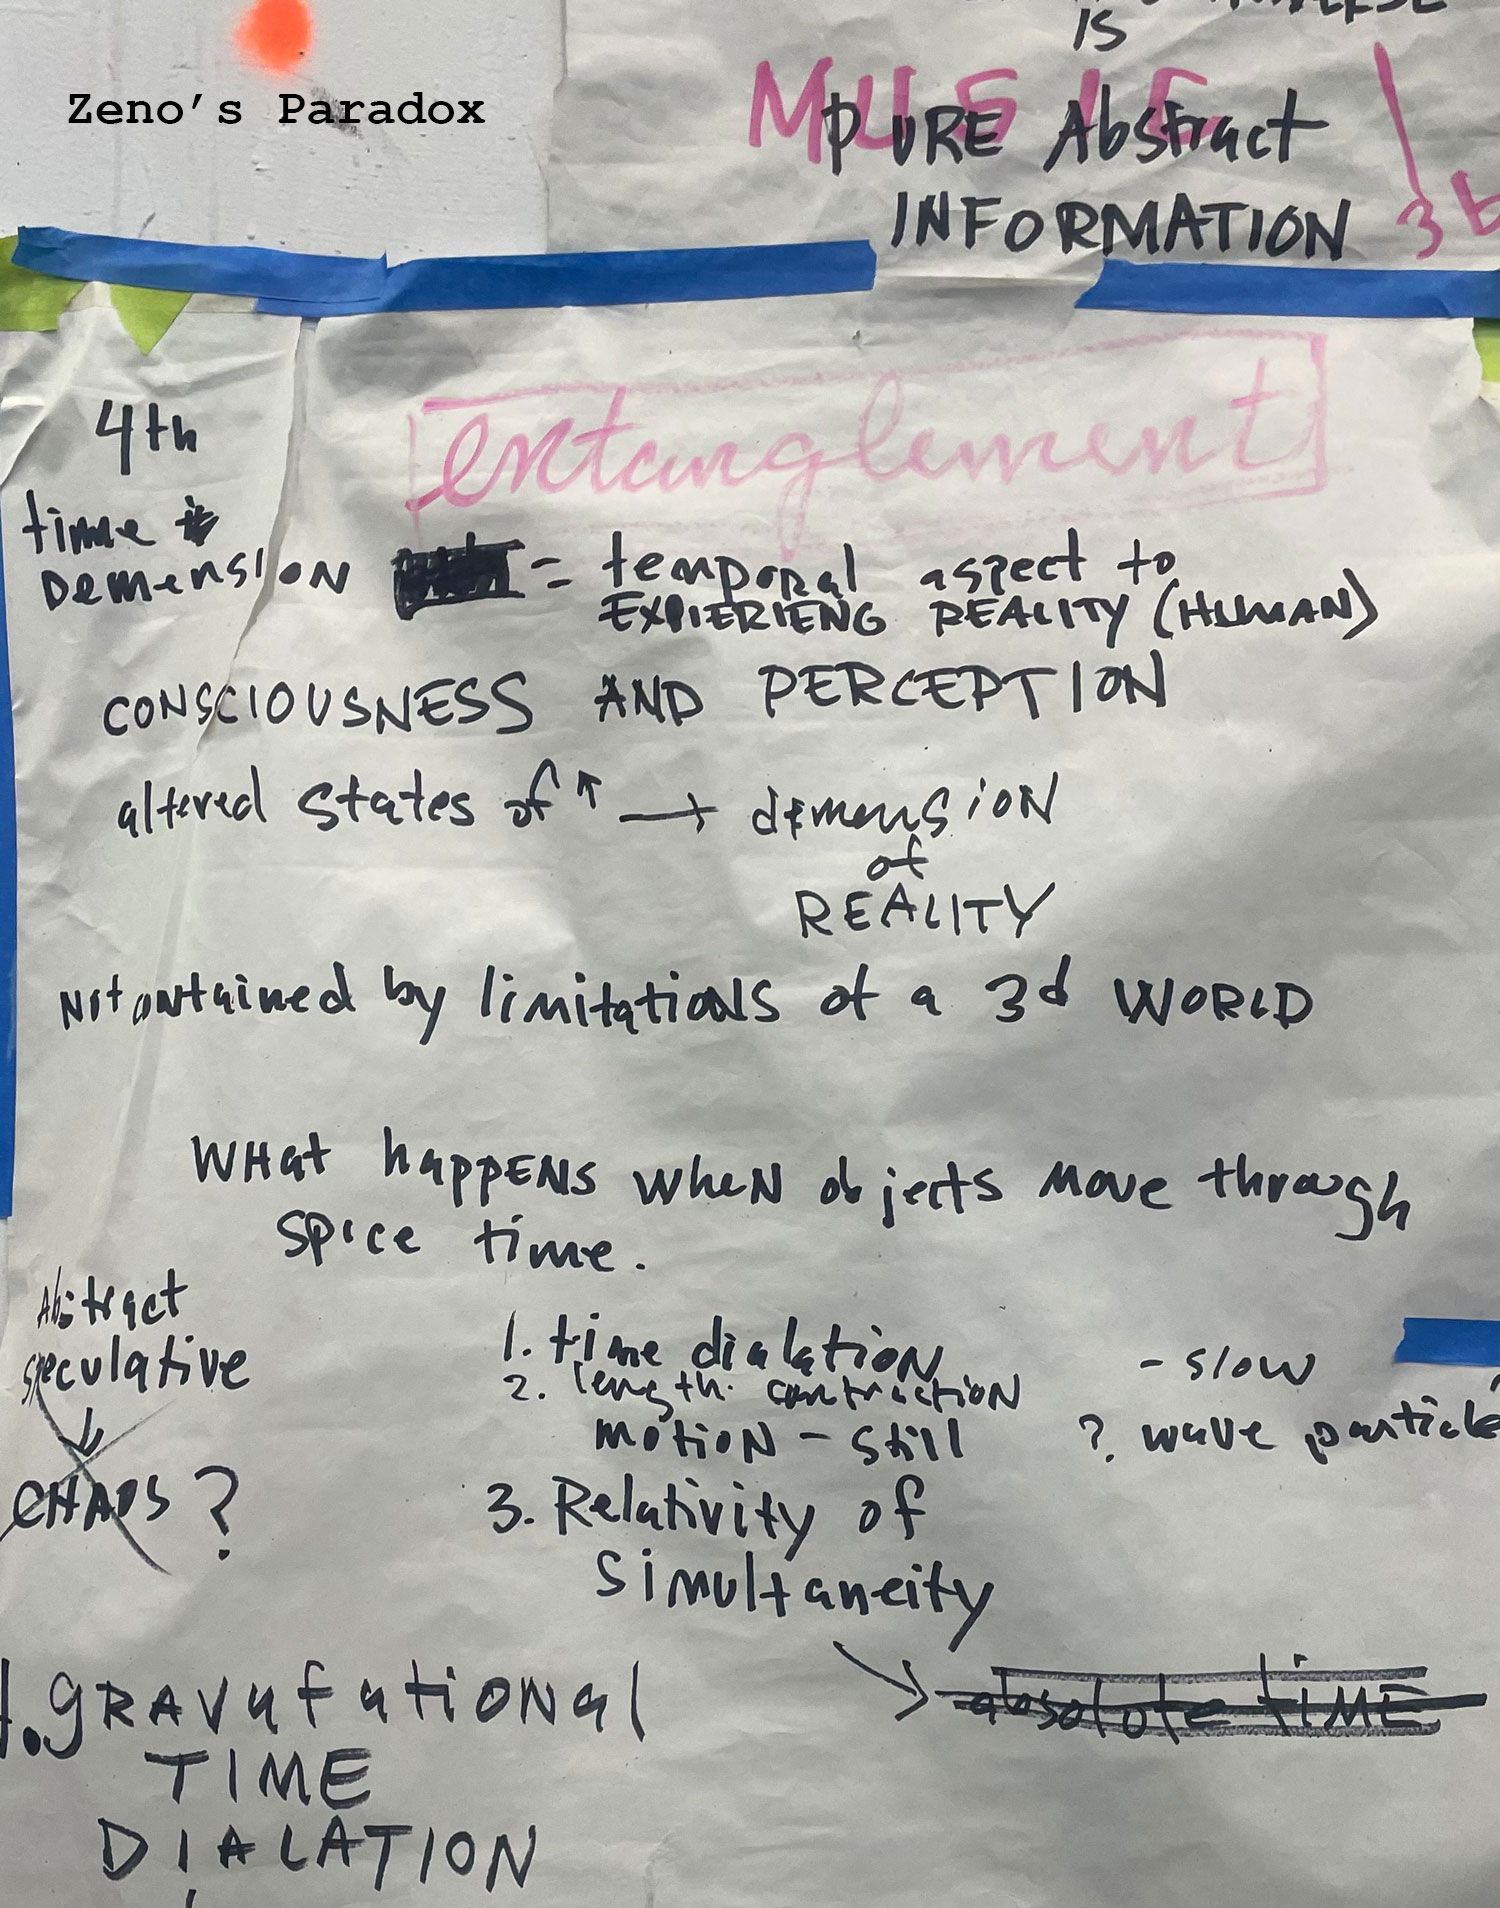 Zeno's Paradox
IS
MUSIC
PURE Abstract
INFORMATION
3
entanglement
4th
time is
DemensION = temporal aspect to
EXPIERIENG REALITY (HUMAN)
CONSCIOUSNESS AND PERCEPTION
altered states of ↑ → demension
of
REALITY
Not contained by limitations of a 3d WORLD
WHat happens when objects move through
space time.
Abstract
speculative
↓
CHAOS ?
1. time dialation - slow
2. length contraction
motion - still ? wave particle
3. Relativity of
simultaneity
→ absolute time
gravufational
TIME
DIALATION